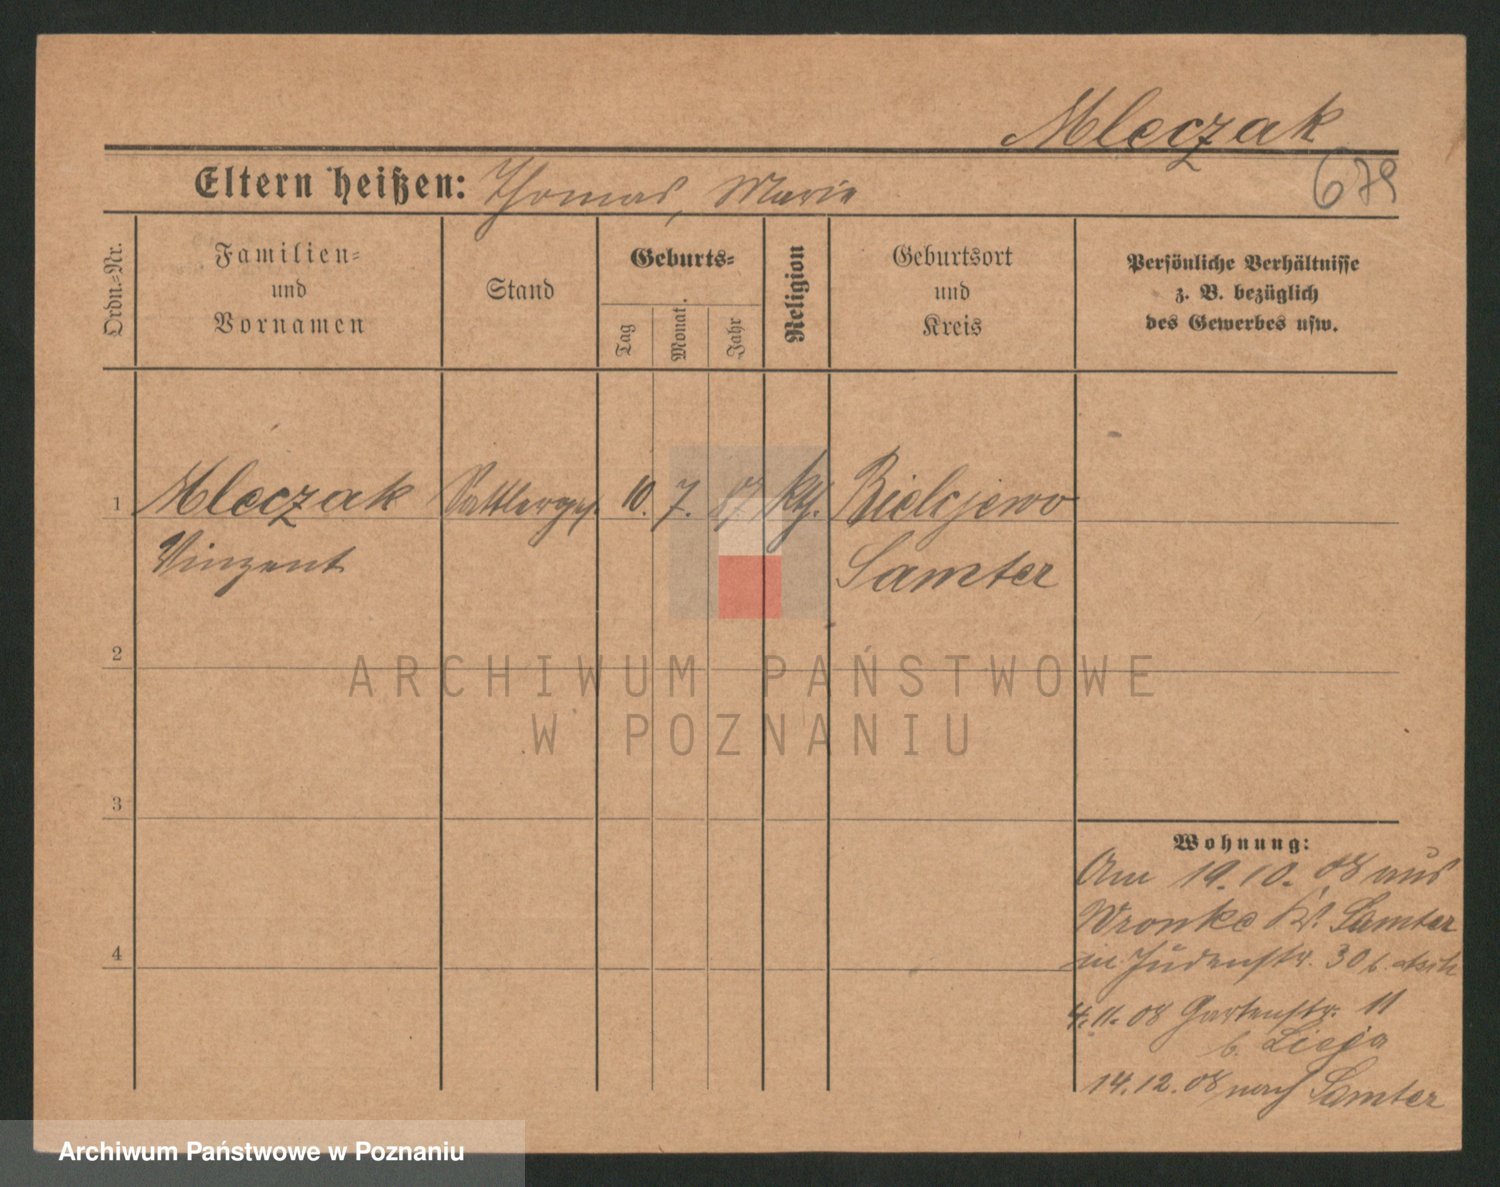 Mleczak
679
Eltern heißen: Thomas, Marie
Ordn.-Nr.
Familien-
und
Vornamen
Stand
Geburts-
Tag
Monat.
Jahr
Religion
Geburtsort
und
Kreis
Persönliche Verhältnisse
z. B. bezüglich
des Gewerbes usw.
1 Mleczak Sattlerges. 10. 7. kth. Bielejewo
Vinzent Samter
2
ARCHIWUM PAŃSTWOWE
W POZNANIU
3
Wohnung:
Am 19.10.08 aus
Wronke Kr. Samter
in Judenstr. 30 b.
4
4.11.08 Gartenstr. 11
b.
14.12.08 nach Samter
Archiwum Państwowe w Poznaniu